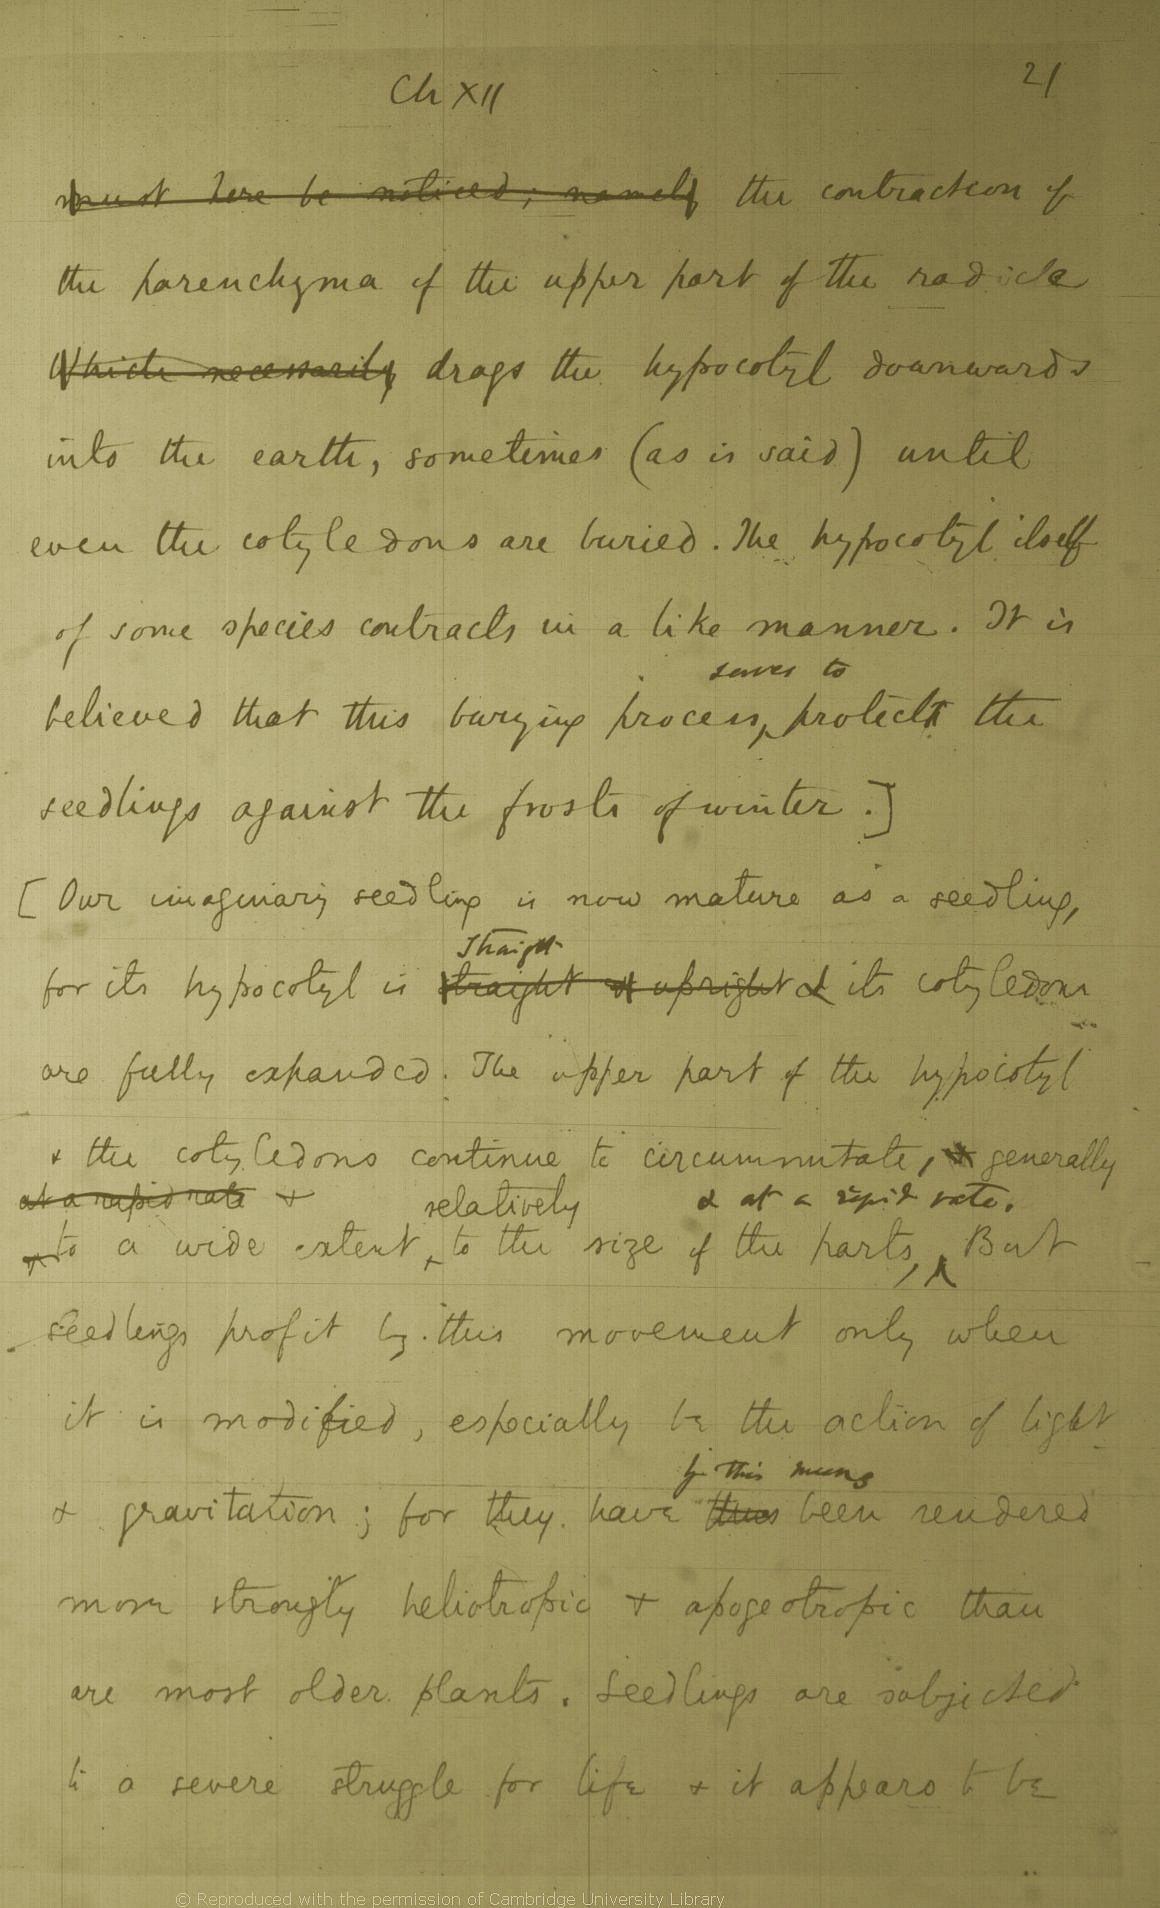 Ch XII
21
must here be noticed; namely the contraction of
the parenchyma of the upper part of the radicle
Which necessarily drags the hypocotyl downwards
into the earth, sometimes (as is said) until
even the cotyledons are buried. The hypocotyl itself
of some species contracts in a like manner. It is
serves to
believed that this burying process, protects the
seedlings against the frosts of winter.]
[Our imaginary seedling is now mature as a seedling,
straight
for its hypocotyl is straight & upright & its cotyledons
are fully expanded. The upper part of the hypocotyl
& the cotyledons continue to circumnutate, & generally
at a rapid rate & relatively & at a rapid rate.
to a wide extent, to the size of the parts, But
seedlings profit by this movement only when
it is modified, especially by the action of light
by this means
& gravitation; for they have thus been rendered
more strongly heliotropic & apogeotropic than
are most older plants. Seedlings are subjected
to a severe struggle for life & it appears to be
© Reproduced with the permission of Cambridge University Library